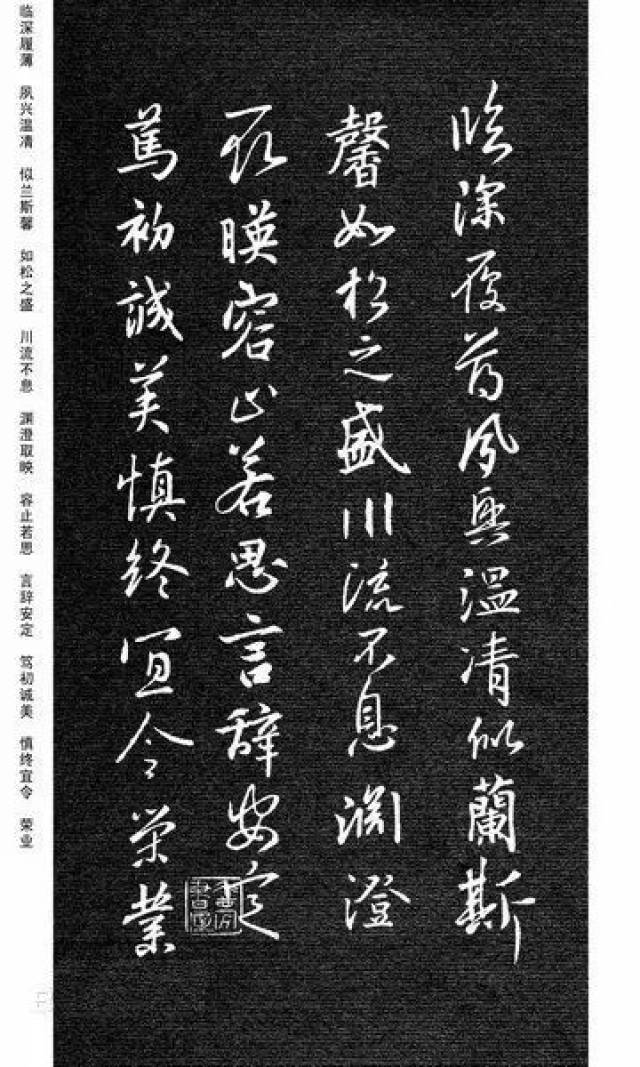 臨深履薄夙興溫清似蘭斯
馨如松之盛川流不息淵澄
取暎容止若思言辭安定
篤初誠美慎終宜令榮業
临深履薄 夙兴温清 似兰斯馨 如松之盛 川流不息 渊澄取映 容止若思 言辞安定 笃初诚美 慎终宜令 荣业